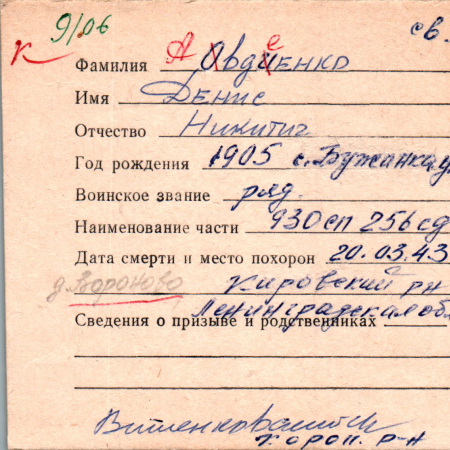 К 9/06 св.
Фамилия Авдеенко
Имя Денис
Отчество Никитич
Год рождения 1905 с. Бужанка
Воинское звание ряд.
Наименование части 930 сп 256 сд
Дата смерти и место похорон 20.03.43
д. Вороново Кировский р-н
Ленинградская обл
Сведения о призыве и родственниках
р-н